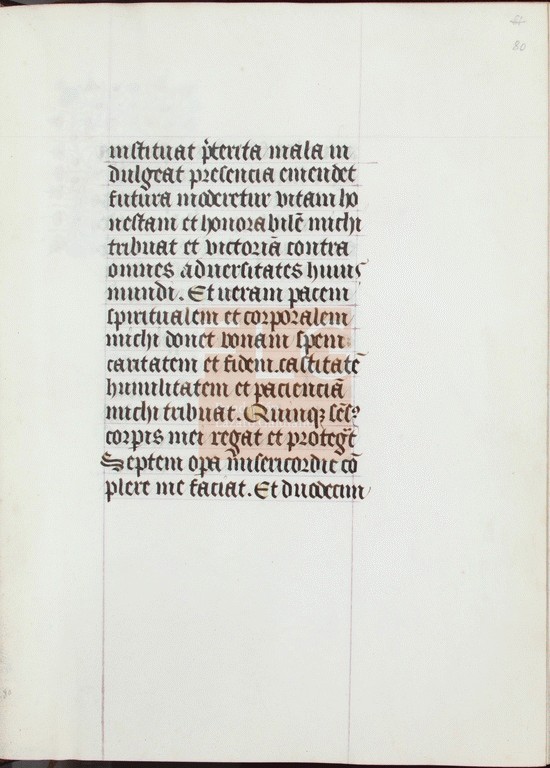 80
instituat p̄terita mala in
dulgeat presencia emendet
futura moderetur vitam ho
nestam et honorabilē michi
tribuat et victoriā contra
omnes aduersitates huius
mundi. Et ueram pacem
spiritualem et corporalem
michi donet bonam spem
caritatem et fidem. castitatē
humilitatem et pacienciā
michi tribuat. Quinqꝫ sēsꝰ
corpis mei regat et protegat
Septem opa misericordie cō
plere me faciat. Et duodecim